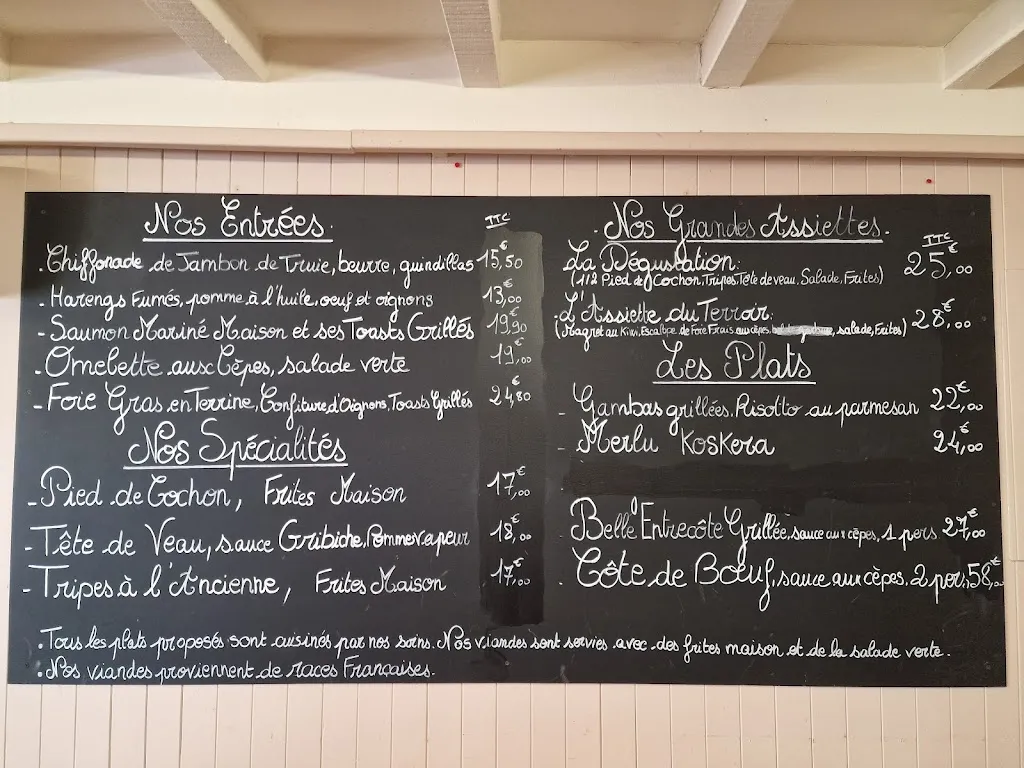 Nos Entrées.
TTC
. Chiffonade de Jambon de Truie, beurre, guindillas 15,50€
- Harengs Fumés, pomme à l'huile, oeuf et oignons 13,00€
- Saumon Mariné Maison et ses Toasts Grillés 19,90€
- Omelette aux Cèpes, salade verte 19,00€
- Foie Gras en Terrine, Confiture d'Oignons, Toasts Grillés 24,80€
Nos Spécialités
- Pied de Cochon, Frites Maison 17,00€
- Tête de Veau, sauce Gribiche, Pomme vapeur 18,00€
- Tripes à l'Ancienne, Frites Maison 17,00€
. Nos Grandes Assiettes.
TTC
La Dégustation: 25,00€
(1/2 Pied de Cochon, Tripes, Tête de veau, Salade, Frites)
. L'Assiette du Terroir: 28,00€
(Magret au Kiwi, Escalope de Foie Frais aux cèpes, salade, Frites)
Les Plats
- Gambas grillées, Risotto au parmesan 22,00€
- Merlu Koskera 24,00€
Belle Entrecôte Grillée, sauce aux cèpes, 1 pers 27,00€
. Côte de Bœuf, sauce aux cèpes. 2 pers, 58,00€
. Tous les plats proposés sont cuisinés par nos soins. Nos viandes sont servies avec des frites maison et de la salade verte.
. Nos viandes proviennent de races Françaises.